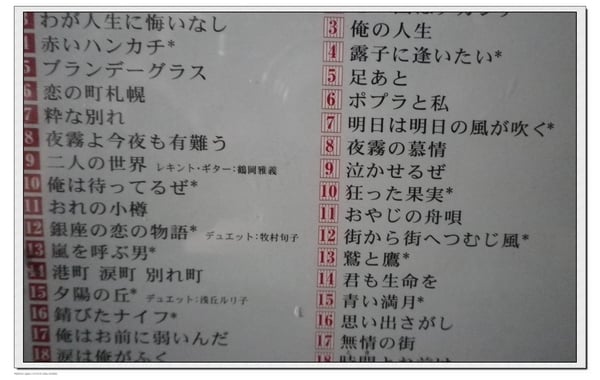 わが人生に悔いなし
4 赤いハンカチ*
5 ブランデーグラス
6 恋の町札幌
7 粋な別れ
8 夜霧よ今夜も有難う
9 二人の世界 レキント・ギター:鶴岡雅義
10 俺は待ってるぜ*
11 おれの小樽
12 銀座の恋の物語* デュエット:牧村旬子
13 嵐を呼ぶ男*
14 港町 涙町 別れ町
15 夕陽の丘* デュエット:浅丘ルリ子
16 錆びたナイフ*
17 俺はお前に弱いんだ
18 涙は俺がふく
3 俺の人生
4 露子に逢いたい*
5 足あと
6 ポプラと私
7 明日は明日の風が吹く*
8 夜霧の慕情
9 泣かせるぜ
10 狂った果実*
11 おやじの舟唄
12 街から街へつむじ風*
13 鷲と鷹*
14 君も生命を
15 青い満月*
16 思い出さがし
17 無情の街
18